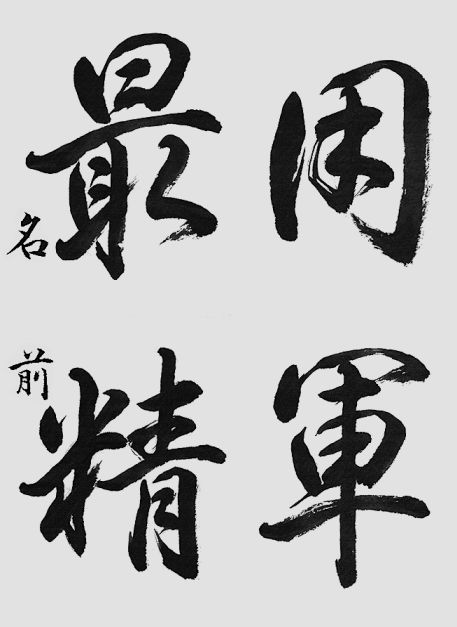 周軍
最精
名前